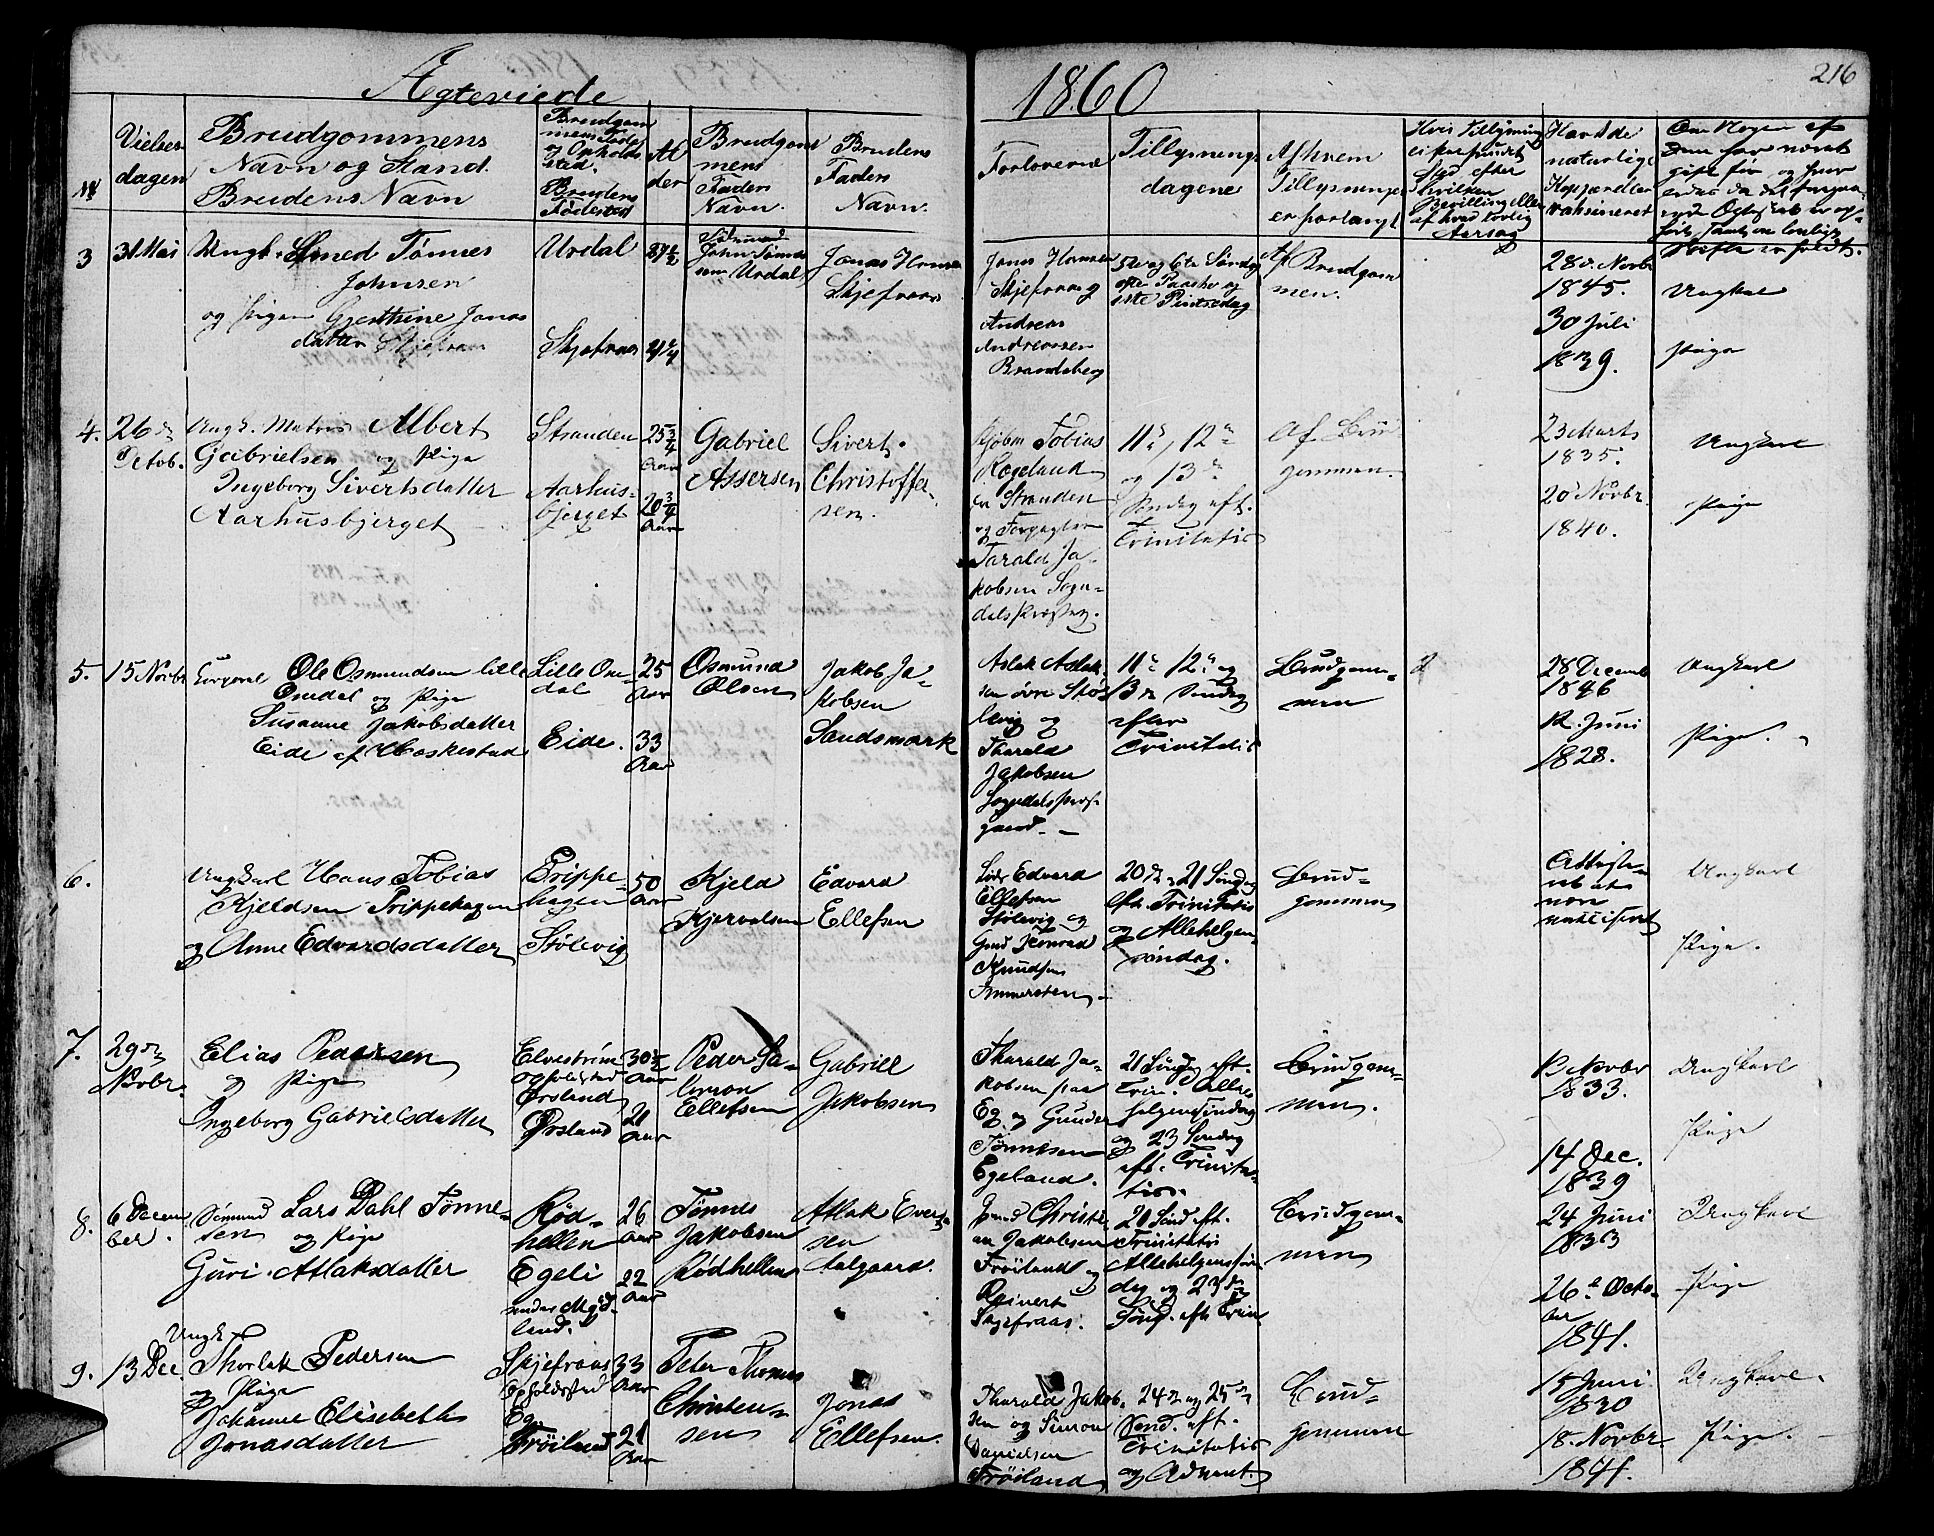 Ægteviede
1860
216
№
Vielses
dagen
Brudgommens
Navn og Stand.
Brudens Navn
Brudgom
mens Føde
og Opholds
sted.
Brudens
Fødested
Al
der
Brudgom
mens
Faders
Navn.
Brudens
Faders
Navn.
Forloverne
Tillysnings
dagene
Af hvem
Tillysningen
er forlangt
Hvis Tillysning
ei har fundet
Sted efter
hvilken
Bevilling eller
af hvad lovlig
Aarsag
Havt de
naturlige
Kopper eller
vaksineret
Om Nogen af
dem har været
gift før og hvor
3
31 Mai
Ungk. Smed Tønnes
Johnsen
og Pigen Gjerthine Jonas
datter Skjefraas
Urdal
Skjefraas
27 1/2
21 1/4
John Tønnes
sen Urdal
Jonas Hansen
Skjefraas
Jonas Hansen
Skjefraas og
Andreas
Andreassen
Brandsberg
5te og 6te Søndag
efter Paaske og
1ste Pintsedag
Af Brudgom
men.
28de Novbr
1845.
30 Juli
1839.
Ungkarl
Pige
4.
26de
Octob.
Ungk. Matros Albert
Gabrielsen og Pige
Ingeborg Sivertsdatter
Aarhusbjerget
Stranden
Aarhus-
bjerget
25 3/4
Aar
20 3/4
Aar
Gabriel
Assersen
Sivert
Christoffer-
sen.
Tobias
Rogeland
Stranden
og Forpagter
Tarald Ja-
kobsen Sogn-
dals Præsteg.
11te, 12te
og 13de
Søndag eft.
Trinitatis
Af Brud
gommen
23 Marts
1835.
20 Novbr.
1840.
Ungkarl
Pige
5.
15 Novbr
Ole Osmundsen lille
Omdal og Pige
Susanne Jakobsdatter
Eide af Hæskestad
Lille Om-
dal
Eide.
25
Aar
33
Aar
Osmund
Olsen
Jakob Ja-
kobsen
Sandsmark
Aslak Aslak
sen øvre Stø
levig og
Tharald
Jakobsen
Sogndals Præst
gaard.
11te 12te og
13de Søndag
efter
Trinitatis
Brudgom-
men
28 Decemb
1846
12. Juni
1828.
Ungkarl
Pige.
6.
Ungkarl Hans Tobias
Kjeldsen Trippehagen
og Anne Edvardsdatter
Trippe-
hagen
Stølevig
50
Aar
Kjeld
Kjervalsen
Edvard
Ellefsen
Edvard
Ellefsen
Stølevig og
Konrad
Knudsen
20de og 21 Søndag
eft. Trinitatis
og Allehelgen
søndag.
Brud-
gommen
Attester
om at
være
vakcineret
Ungkarl
Pige.
7.
29de
Novbr.
Elias Pedersen
og Pige
Ingeborg Gabrielsdatter
Elvestrøm
opholdsted
Ørsland
Ørsland
30 1/2
Aar
21
Aar
Peder Sa-
lomon
Ellefsen
Gabriel
Jakobsen
Tharald Ja-
kobsen paa
Eg og Gunder
Tønnesen
Egeland.
21 Søndag eft.
Trin. Alle-
helgensøndag
og 23 Søndag
eft. Trinita-
tis.
Brudgom-
men.
12 Novbr
1833.
14 Dec.
1839
Ungkarl
Pige
8.
6 Decem
ber.
Sømand Lars Dahl Tønne-
sen og Pige
Guri Atlaksdatter
Rød-
hellen
Egeli
under Mød-
land.
26
Aar
22
Aar
Tønnes
Jakobsen
Rødhellen
Atlak Evert-
sen
Aalgaard.
Christi
an Jakobsen
Frøiland og
Reinert
Skjefraas.
21 Sønd eft.
Trinitatis
Allehelgenssøn
dag og 23de
Sønd. eft Trin
Brudgom-
men
24 Juni
1833
26de Octo-
ber
1841.
Ungkarl
Pige
9.
13 Dec
Ungk
Thorlak Pedersen
og Pige
Johanne Elisebeth
Jonasdatter
Skjefraas
Opholdsted
Eg.
Frøiland
33
Aar
21
Aar
Peter Thomas
Christen-
sen
Jonas
Ellefsen.
Tharald Jakob-
sen og Simon
Danielsen
Frøiland
24de og 25de
Sønd. eft.
Trinitatis
og Advent.
Brud-
gommen
15 Juni
1830
18. Novbr.
1841.
Ungkarl
Pige.